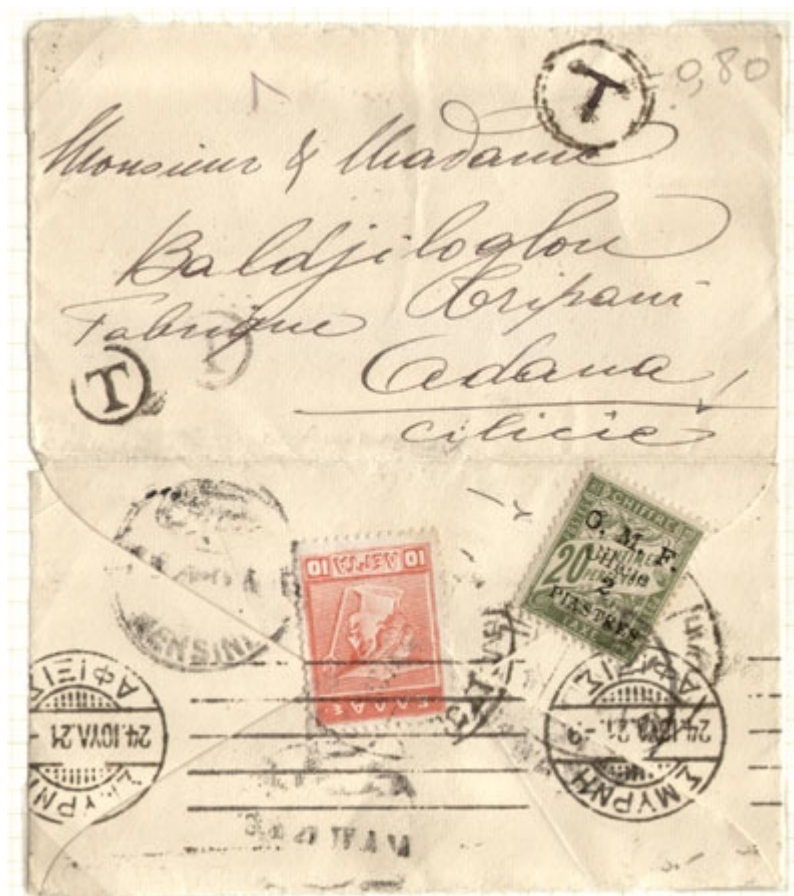 T 0,80
Monsieur & Madame
Baldjiloglou
Fabrique Tripani
T T
Adana,
Cilicie
MERSINE
10 ΛΕΠΤΑ 10
ΕΛΛΑΣ
CHIFFRE
O. M. F.
20
2
PIASTRES
TAXE
ΑΦΙΞΙΣ
24.ΙΟΥΛ.21
ΣΜΥΡΝΗ
ΑΦΙΞΙΣ
24.ΙΟΥΛ.21.-9
ΣΜΥΡΝΗ